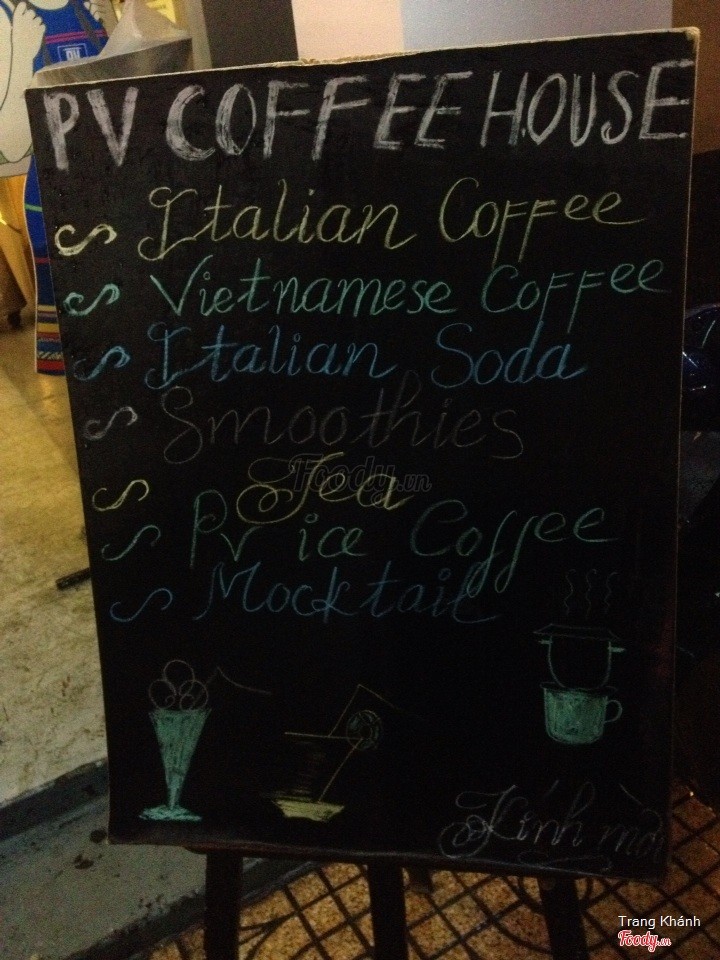 PV COFFEE HOUSE
Italian Coffee
Vietnamese Coffee
Italian Soda
Smoothies
Tea
Pv ice Coffee
Mocktail
Kính mời
Foody.vn
Trang Khánh
Foody.vn